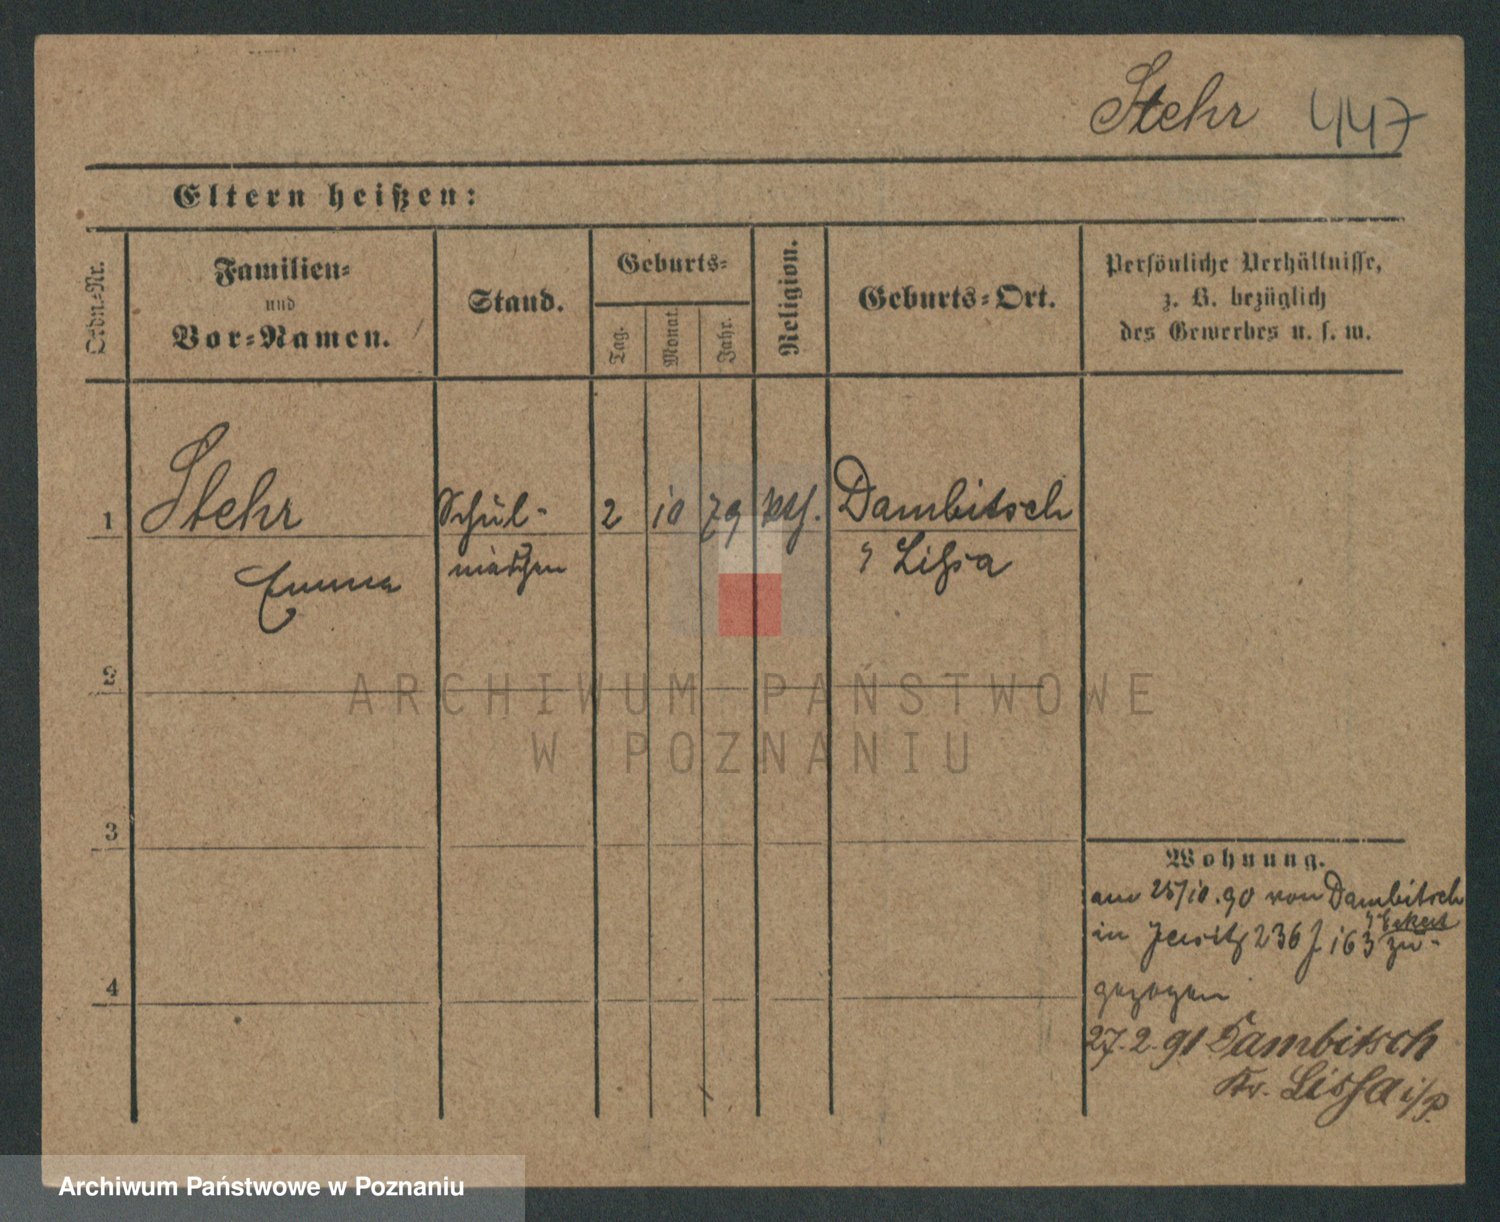 Stehr 447
Eltern heißen:
Ordn.=Nr.
Familien=
und
Vor=Namen.
Stand.
Geburts=
Tag.
Monat.
Jahr.
Religion.
Geburts=Ort.
Persönliche Verhältnisse,
z. B. bezüglich
des Gewerbes u. s. w.
1 Stehr Schul- 2 10 79 kth. Dambitsch
Emma mädchen Lissa
2
3
4
Wohnung.
am 25/10.90 von Dambitsch
Eckert
in Jersitz 236 J 163 zu-
gezogen
27.2.91 Dambitsch
Kr. Lissa i/P
ARCHIWUM PAŃSTWOWE
W POZNANIU
Archiwum Państwowe w Poznaniu